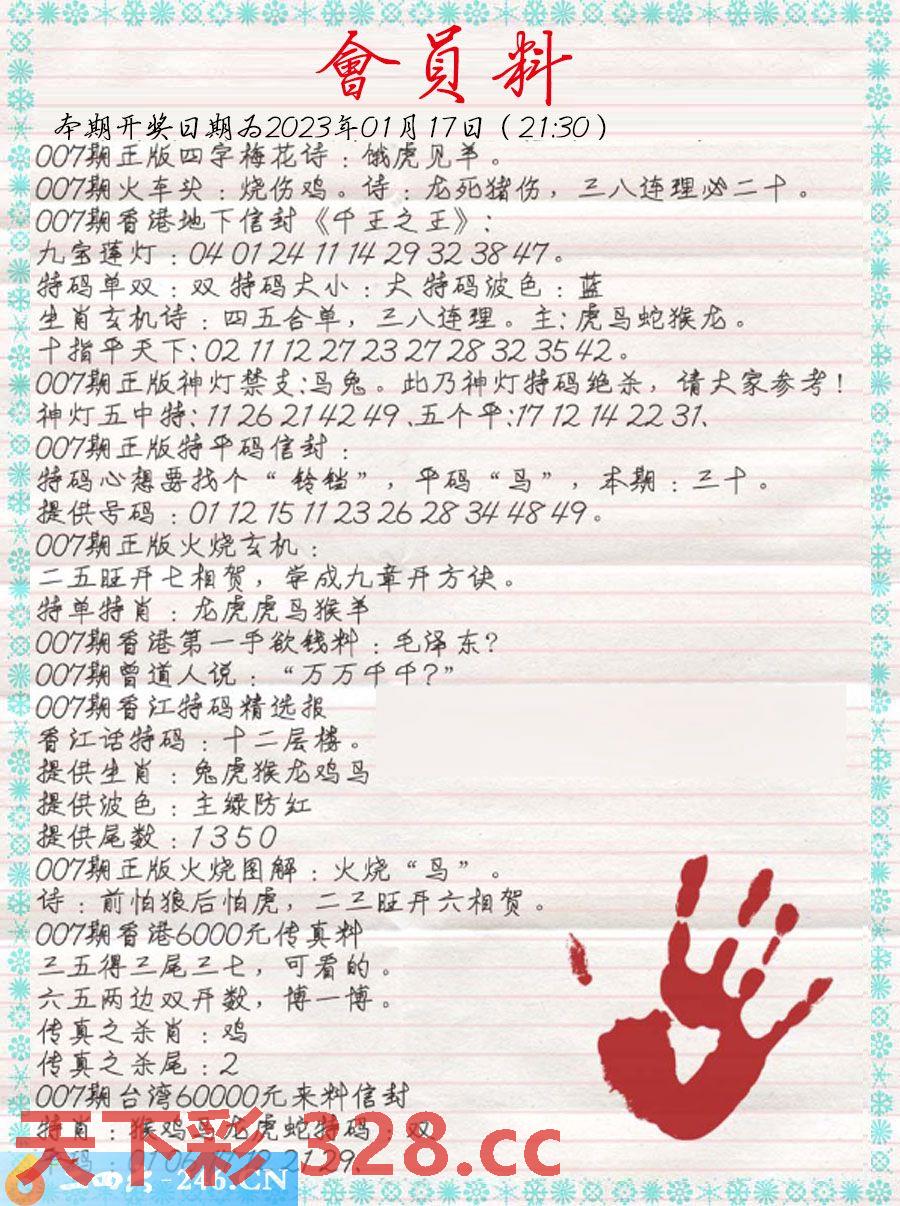 會員料
本期开奖日期为2023年01月17日（21:30）
007期正版四字梅花诗：饿虎见羊。
007期火车头：烧伤鸡。诗：龙死猪伤，三八连理必二十。
007期香港地下信封《千王之王》:
九宝莲灯：04 01 24 11 14 29 32 38 47。
特码单双：双 特码大小：大 特码波色：蓝
生肖玄机诗：四五合单，三八连理。主:虎马蛇猴龙。
十指平天下:02 11 12 27 23 27 28 32 35 42。
007期正版神灯禁支:马兔。此乃神灯特码绝杀，请大家参考！
神灯五中特:11 26 21 42 49、五个平:17 12 14 22 31、
007期正版特平码信封：
特码心想要找个“铃铛”，平码“鸟”，本期：三十。
提供号码：01 12 15 11 23 26 28 34 48 49。
007期正版火烧玄机：
二五旺开七相贺，学成九章开方诀。
特单特肖：龙虎虎马猴羊
007期香港第一手欲钱料：毛泽东?
007期曾道人说：“万万千千?”
007期香江特码精选报
香江话特码：十二层楼。
提供生肖：兔虎猴龙鸡马
提供波色：主绿防红
提供尾数：1 3 5 0
007期正版火烧图解：火烧“鸟”。
诗：前怕狼后怕虎，二三旺开六相贺。
007期香港6000元传真料
三五得三尾三七，可看的。
六五两边双开数，博一博。
传真之杀肖：鸡
传真之杀尾：2
007期台湾60000元来料信封
特肖：猴鸡马龙虎蛇特码：双
天下彩 328.cc
21 29、
-246.CN